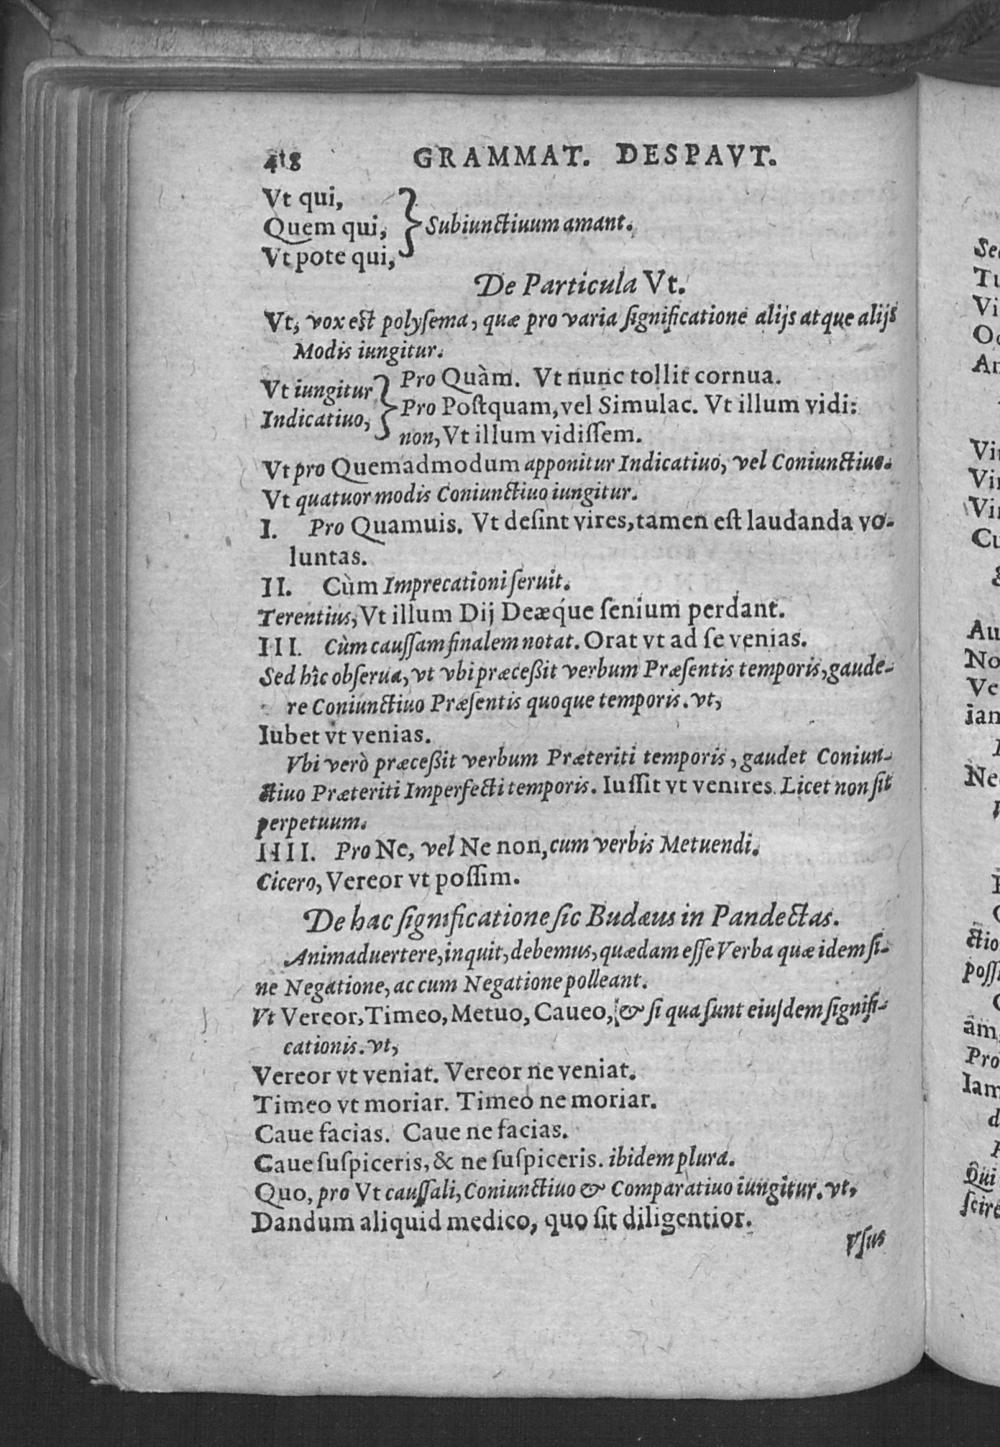 418 GRAMMAT. DESPAVT.
Vt qui,
Quem qui, } Subiunctiuum amant.
Vt pote qui,
De Particula Vt.
Vt, vox est polysema, quæ pro varia significatione alijs atque alijs
Modis iungitur.
Vt iungitur Indicatiuo, } Pro Quàm. Vt nunc tollit cornua.
Pro Postquam, vel Simulac. Vt illum vidi:
non, Vt illum vidissem.
Vt pro Quemadmodum apponitur Indicatiuo, vel Coniunctiuo.
Vt quatuor modis Coniunctiuo iungitur.
I. Pro Quamuis. Vt desint vires, tamen est laudanda vo-
luntas.
II. Cùm Imprecationi seruit.
Terentius, Vt illum Dij Deæq́ue senium perdant.
III. Cùm caussam finalem notat. Orat vt ad se venias.
Sed hîc obserua, vt vbi præceßit verbum Præsentis temporis, gaude-
re Coniunctiuo Præsentis quoque temporis. vt,
Iubet vt venias.
Vbi verò præceßit verbum Præteriti temporis, gaudet Coniun-
ctiuo Præteriti Imperfecti temporis. Iussit vt venires. Licet non sit
perpetuum.
IIII. Pro Ne, vel Ne non, cum verbis Metuendi.
Cicero, Vereor vt possim.
De hac significatione sic Budæus in Pandectas.
Animaduertere, inquit, debemus, quædam esse Verba quæ idem si-
ne Negatione, ac cum Negatione polleant.
Vt Vereor, Timeo, Metuo, Caueo, & si qua sunt eiusdem signifi-
cationis. vt,
Vereor vt veniat. Vereor ne veniat.
Timeo vt moriar. Timeo ne moriar.
Caue facias. Caue ne facias.
Caue suspiceris, & ne suspiceris. ibidem plura.
Quo, pro Vt caussali, Coniunctiuo & Comparatiuo iungitur. vt,
Dandum aliquid medico, quo sit diligentior.
Vsus